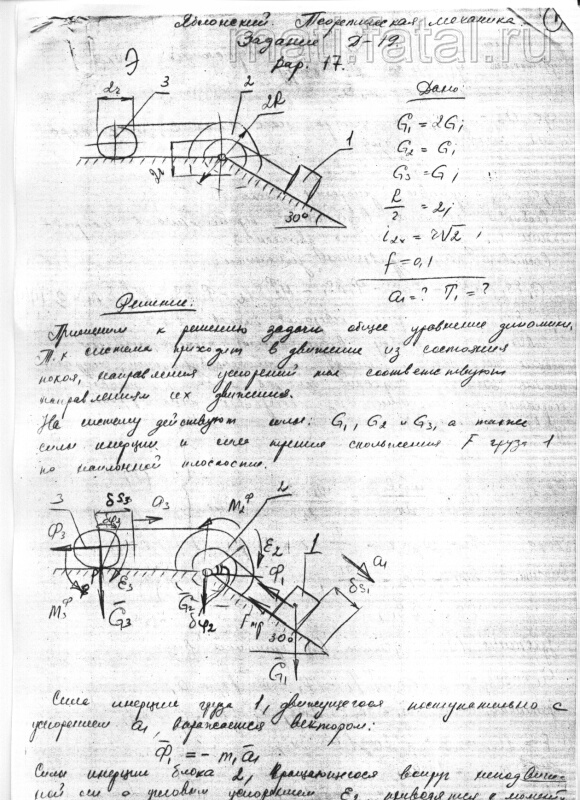 Яблонский. Теоретическая механика.
Задание Д-19
Вар. 17.
1
mati.fatal.ru
Дано:
G₁ = 2G;
G₂ = G;
G₃ = G;
R/r = 2;
i₂ₓ = r√2;
f = 0,1
a₁ = ? T₁ = ?
3
2
2R
1
2r
30°
Решение:
Применим к решению задачи общее уравнение динамики.
Т.к система приходит в движение из состояния
покоя, направления ускорений тел соответствуют
направлениям их движения.
На систему действуют силы: G₁, G₂ и G₃, а также
силы инерции и сила трения скольжения F груза 1
по наклонной плоскости.
3
δS₃
δφ₃
a₃
M₂ᶲ
2
Ф₃
ε₂
Ф₁
1
a₁
δS₁
M₃ᶲ
P
ε₃
G̅₃
G̅₂
δφ₂
Fтр
30°
G̅₁
Сила инерции груза 1, движущегося поступательно с
ускорением a₁ выражается вектором:
Ф̅₁ = - m₁a̅₁
Силы инерции блока 2, вращающегося вокруг неподвиж-
ной оси с угловым ускорением ε₂ приводятся к момент